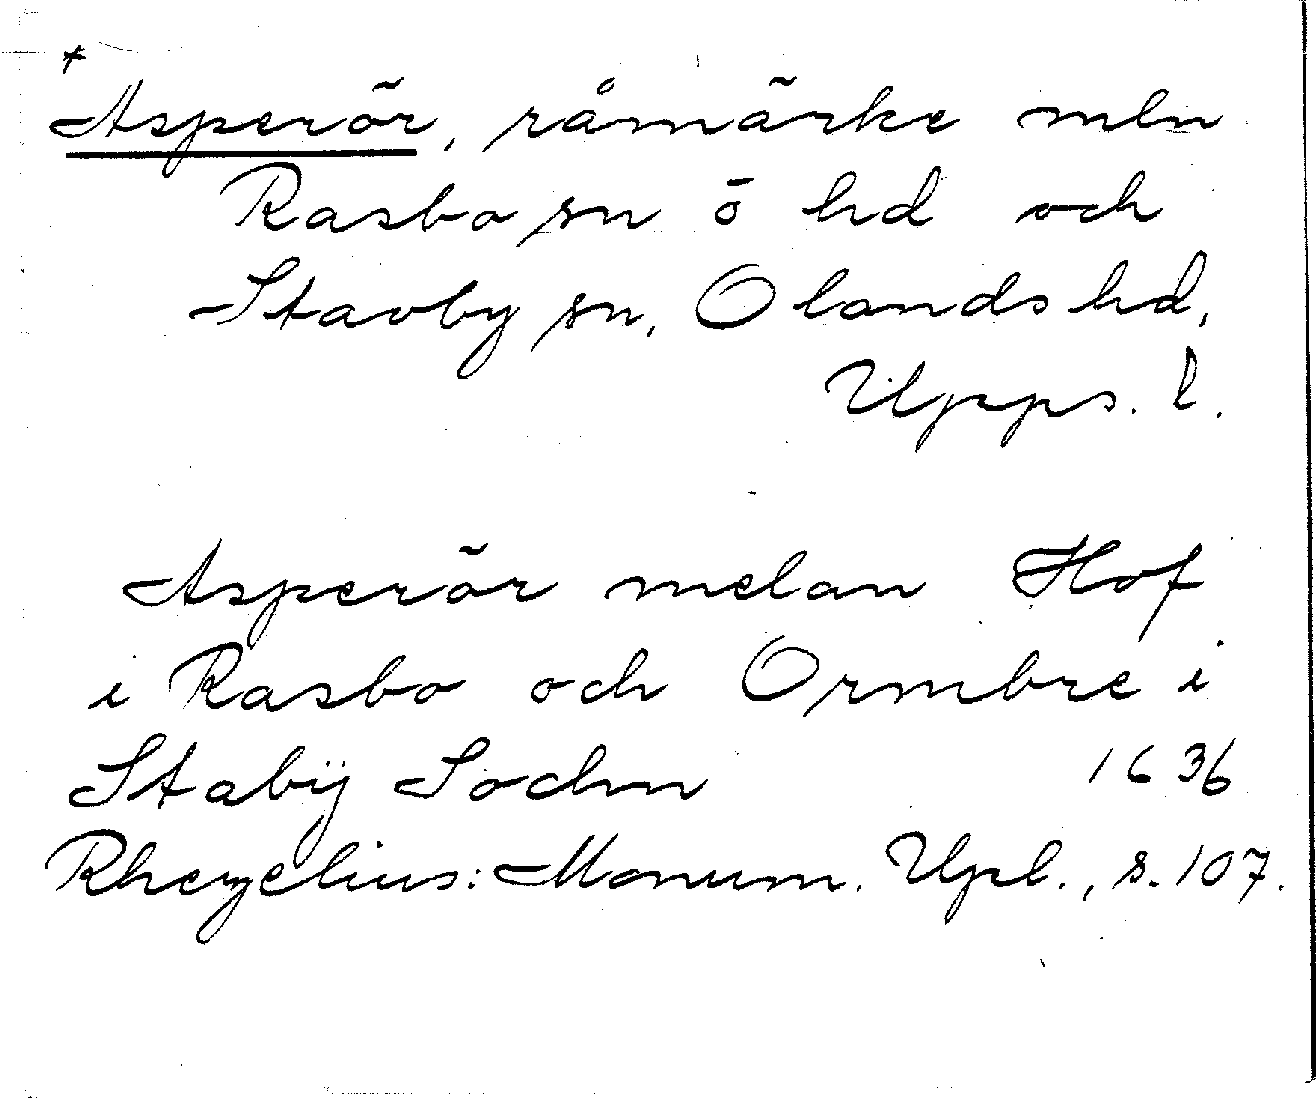 +
Asperör, råmärke mln
Rasbo sn ö hd och
Stavby sn, Olands hd,
Upps. l.
Asperör melan Hof
i Rasbo och Ormbre i
Stabÿ Sochn 1636
Rhezelius: Monum. Upl., s. 107.